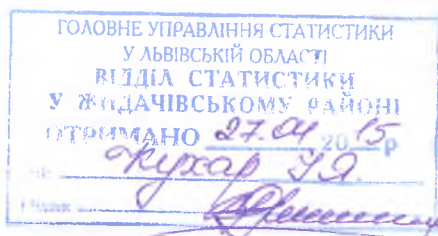 ГОЛОВНЕ УПРАВЛІННЯ СТАТИСТИКИ
У ЛЬВІВСЬКІЙ ОБЛАСТІ
ВІДДІЛ СТАТИСТИКИ
У ЖИДАЧІВСЬКОМУ РАЙОНІ
ОТРИМАНО 27.04 2015р
Кухар